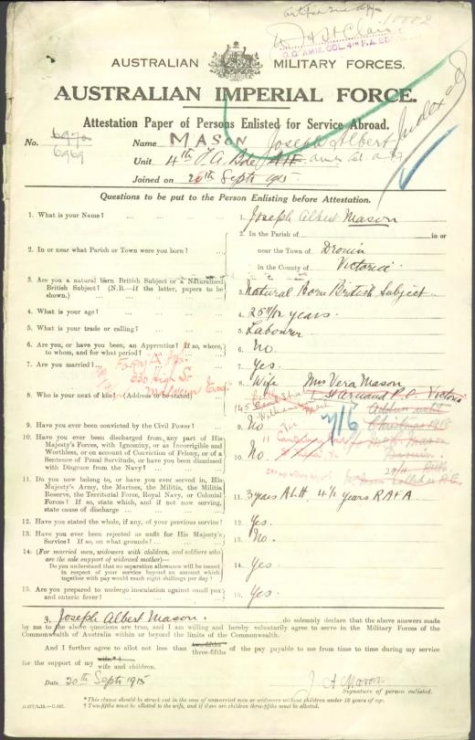 10002
O.C. AMM. COL. 4TH F.A. BDE
AUSTRALIAN MILITARY FORCES.
AUSTRALIAN IMPERIAL FORCE.
Attestation Paper of Persons Enlisted for Service Abroad.
Indexed
No. 6970 6969 Name MASON Joseph Albert
Unit 4th F.A. Bde
Joined on 20th Septr 1915
Questions to be put to the Person Enlisting before Attestation.
1. What is your Name? 1. Joseph Albert Mason
2. In or near what Parish or Town were you born? 2. In the Parish of in or
near the Town of Drouin
in the County of Victoria
3. Are you a natural born British Subject or a Naturalized
British Subject? (N.B.—If the latter, papers to be
shown.) 3. Natural Born British Subject
4. What is your age? 4. years
5. What is your trade or calling? 5. Labourer
6. Are you, or have you been, an Apprentice? If so, where,
to whom, and for what period? 6. No.
7. Are you married? 7. Yes.
8. Who is your next of kin? (Address to be stated) 8. Wife Mrs Vera Mason
Victoria
9. Have you ever been convicted by the Civil Power? 9. No
10. Have you ever been discharged from any part of His
Majesty's Forces, with Ignominy, or as Incorrigible and
Worthless, or on account of Conviction of Felony, or of a
Sentence of Penal Servitude, or have you been dismissed
with Disgrace from the Navy? 10. No.
11. Do you now belong to, or have you ever served in, His
Majesty's Army, the Marines, the Militia, the Militia
Reserve, the Territorial Force, Royal Navy, or Colonial
Forces? If so, state which, and if not now serving,
state cause of discharge 11. 3 years A L H 4½ years RAFA
12. Have you stated the whole, if any, of your previous service? 12. Yes.
13. Have you ever been rejected as unfit for His Majesty's
Service? If so, on what grounds? 13. No.
14. (For married men, widowers with children, and soldiers who
are the sole support of widowed mother)—
Do you understand that no separation allowance will be issued
in respect of your service beyond an amount which
together with pay would reach eight shillings per day? 14. Yes.
15. Are you prepared to undergo inoculation against small pox
and enteric fever? 15. Yes.
I, Joseph Albert Mason. do solemnly declare that the above answers made
by me to the above questions are true, and I am willing and hereby voluntarily agree to serve in the Military Forces of the
Commonwealth of Australia within or beyond the limits of the Commonwealth.
And I further agree to allot not less than two-fifths three-fifths of the pay payable to me from time to time during my service
for the support of my wife* wife and children.
Date 20th Septr 1915 J A Mason
Signature of person enlisted.
* This clause should be struck out in the case of unmarried men or widowers without children under 18 years of age.
† Two-fifths must be allotted to the wife, and if there are children three-fifths must be allotted.